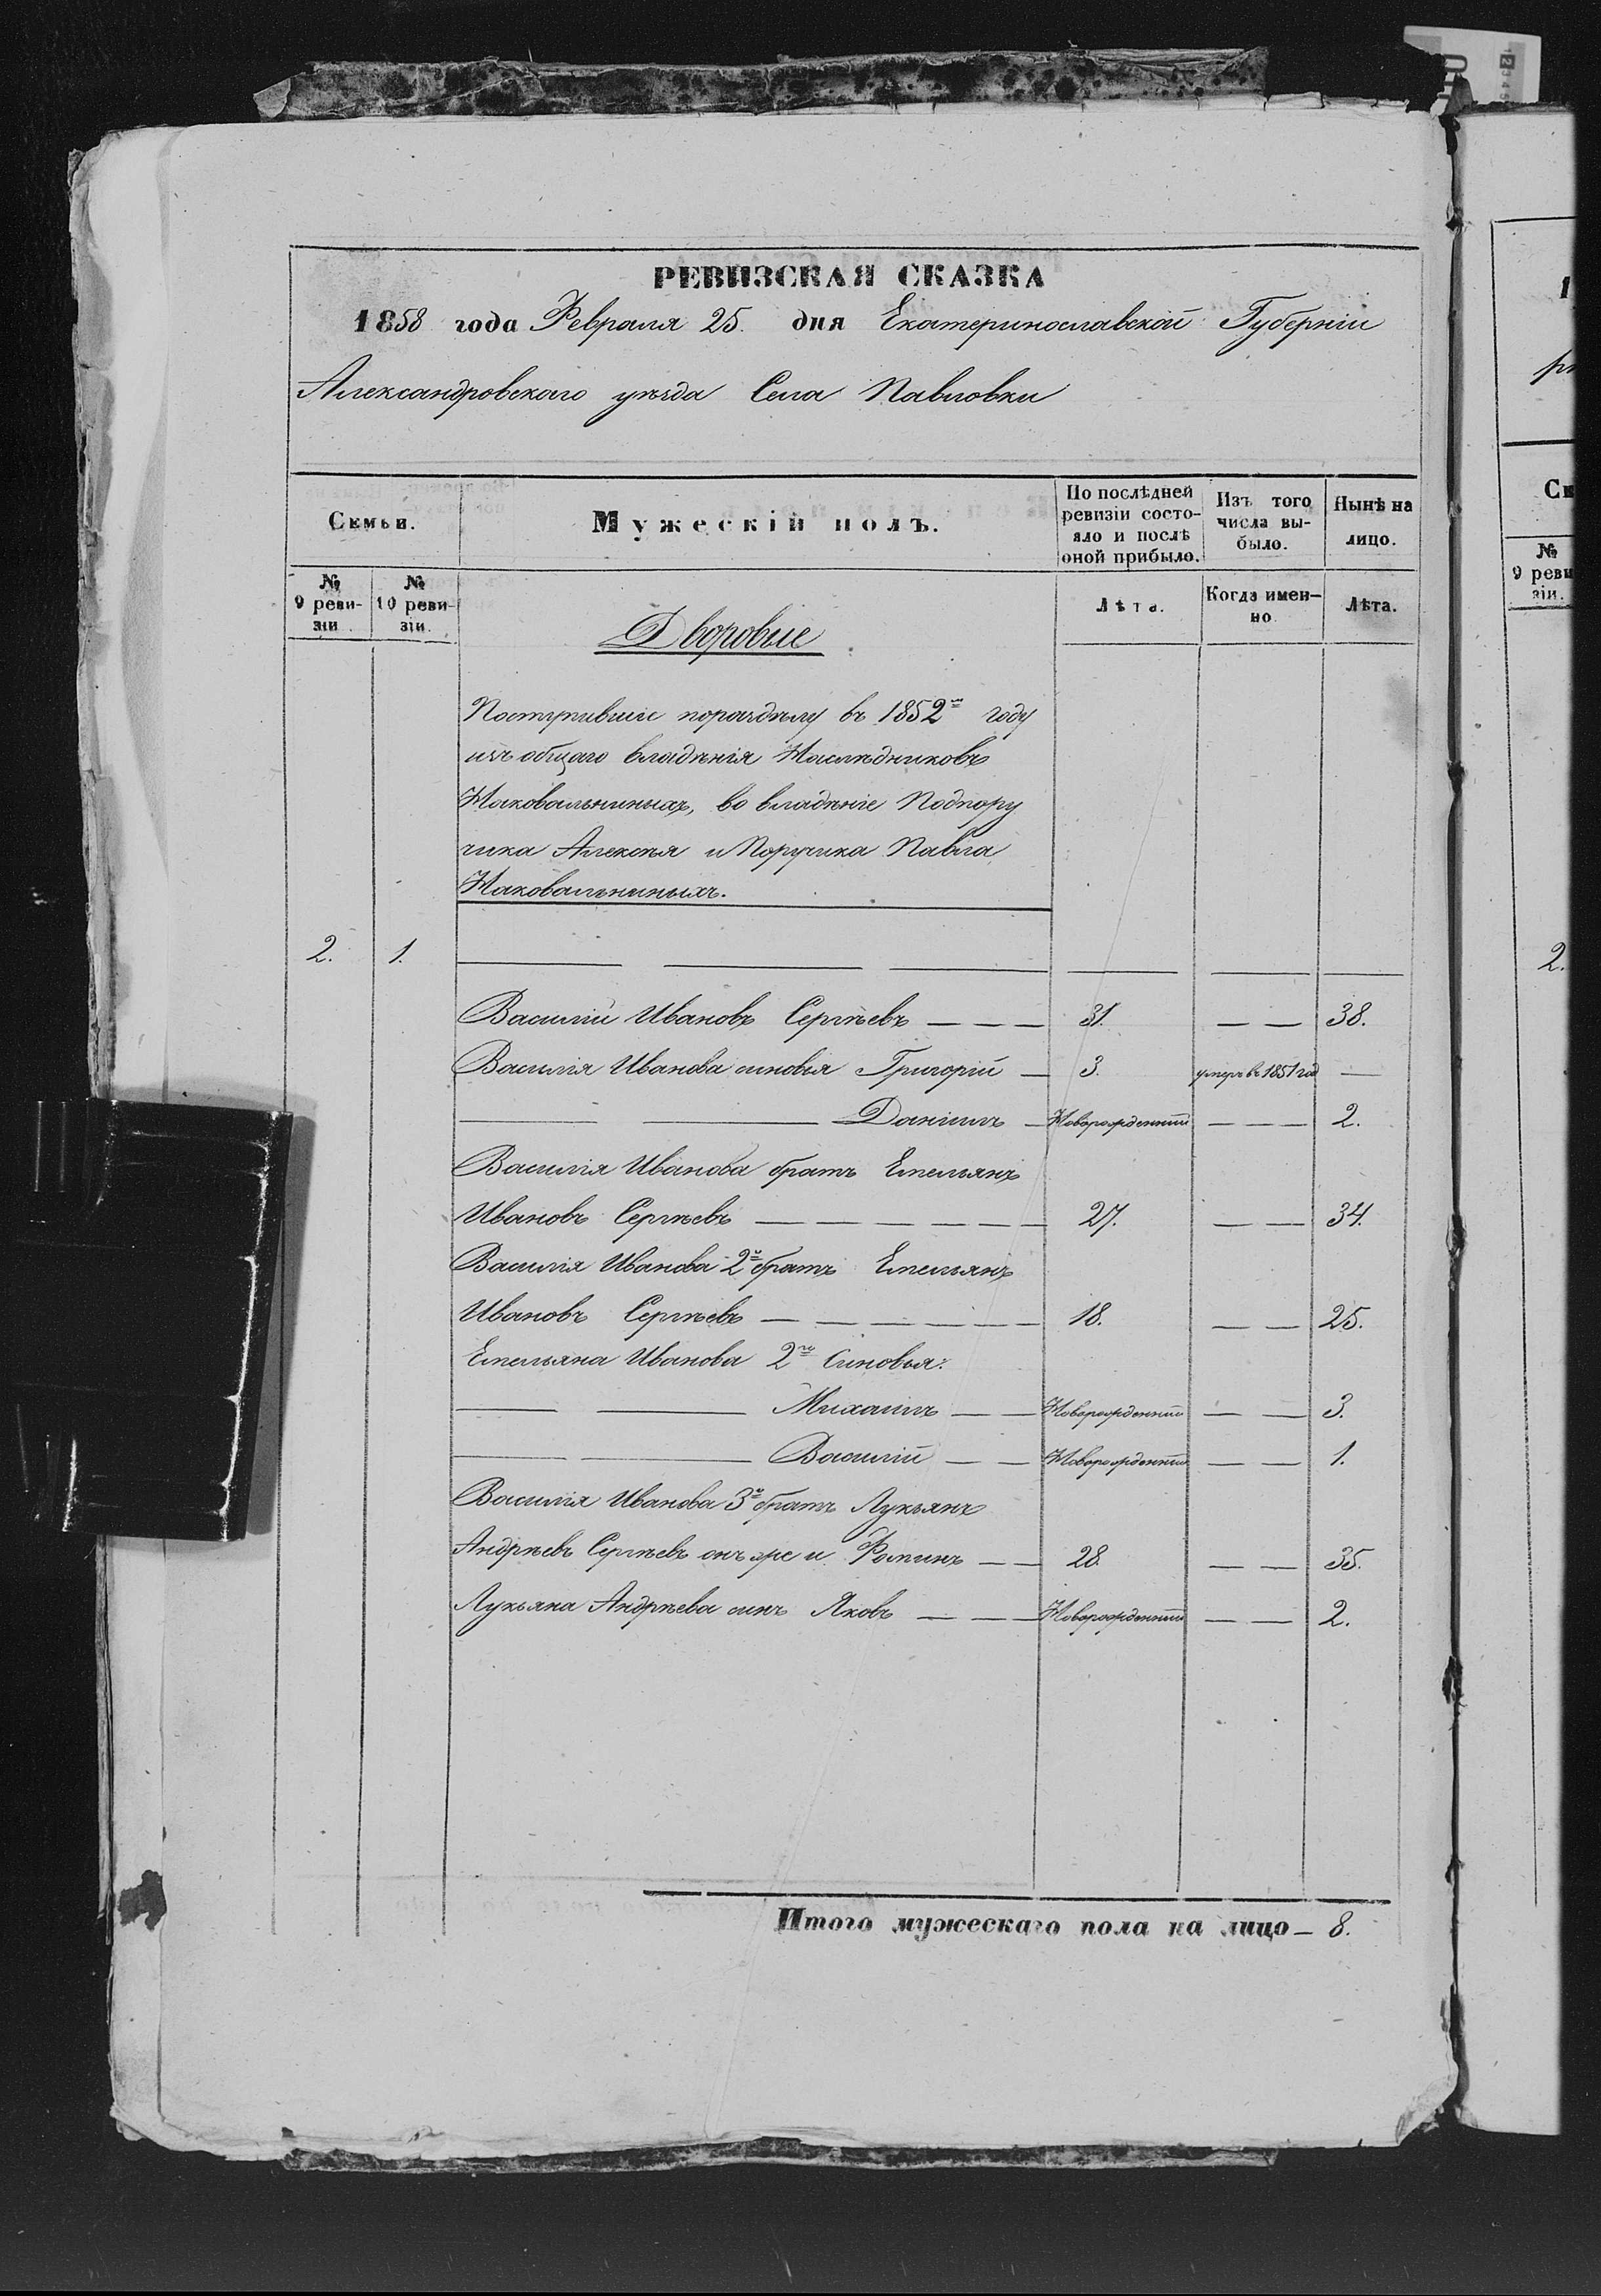 РЕВИЗСКАЯ СКАЗКА
1858 года Февраля 25. дня Екатеринославской Губерніи
Александровскаго уѣзда Села Павловки
Семьи.
Мужескій полъ.
По послѣдней ревизіи состояло и послѣ оной прибыло.
Изъ того числа выбыло.
Нынѣ на лицо.
№ 9 ревизіи
№ 10 ревизіи.
Лѣта.
Когда именно
Лѣта.
Дворовые
Поступившіе пораздѣлу въ 1852м году
изъ общаго владѣнія Наслѣдниковъ
Наковальниныхъ, во владѣніе Подпору
чика Алексѣя и Поручика Павла
Наковальниныхъ.
2. 1.
Василій Ивановъ Сергѣевъ — — — 31. — — 38.
Василія Иванова синовья Григорій — 3. умеръ въ 1851 год —
— — Даніилъ — Новорожденный — — 2.
Василія Иванова братъ Емельянъ
Ивановъ Сергѣевъ — — — — — — 27. — — 34.
Василія Иванова 2й братъ Емельянъ
Ивановъ Сергѣевъ — — — — — — 18. — — 25.
Емельяна Иванова 2го Синовья:
— — Михаилъ — — Новорожденный — — 3.
— — Василій — — Новорожденный — — 1.
Василія Иванова 3й братъ Лукьянъ
Андрѣевъ Сергѣевъ онъ же и Фоминъ — — 28. — — 35.
Лукьяна Андрѣева синъ Яковъ — — Новорожденный — — 2.
Итого мужескаго пола на лицо — 8.
2.
№ 9 реви
зіи.